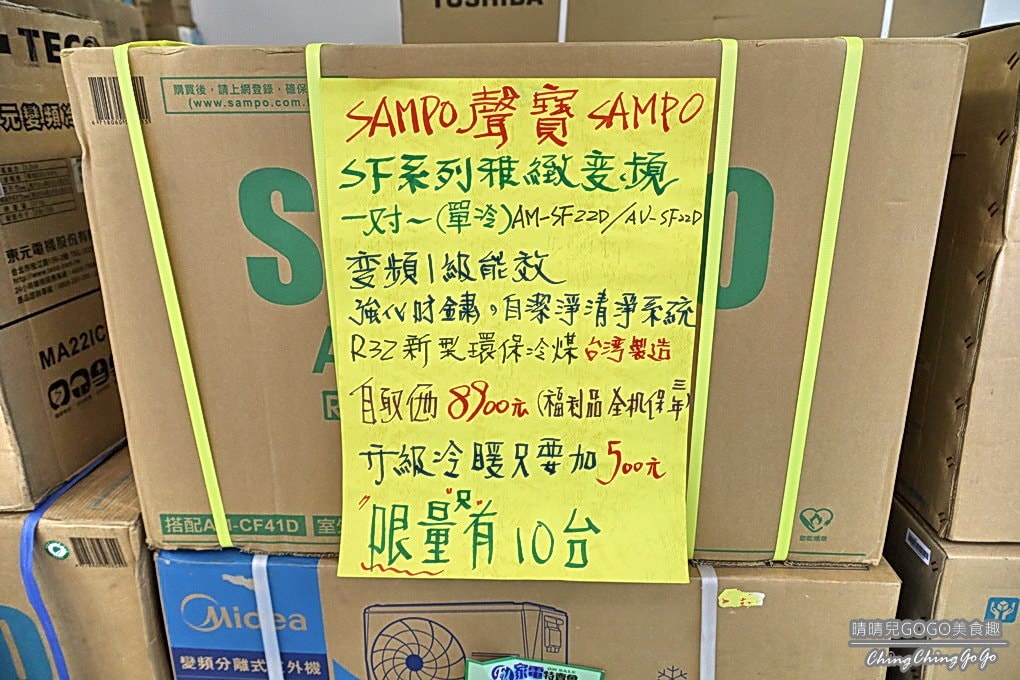 TOSHIBA
TECO
元變頻冷
東元電機股份有限
MA22IC
購買後，請上網登錄，確保
(www.sampo.com.
S O
SAMPO聲寶SAMPO
SF系列雅緻变頻
一对一(單冷)AM-SF22D/AV-SF22D
变頻1級能效
強化防鏽，自潔淨清淨系統
R32新型環保冷煤台湾製造
自取価8900元(福利品全机保三年)
升級冷暖只要加500元
"限量"只有10台
搭配AM-CF41D
室外
Midea
變頻分離式室外機
家電特賣會
晴晴兒GOGO美食趣
ChingChingGoGo